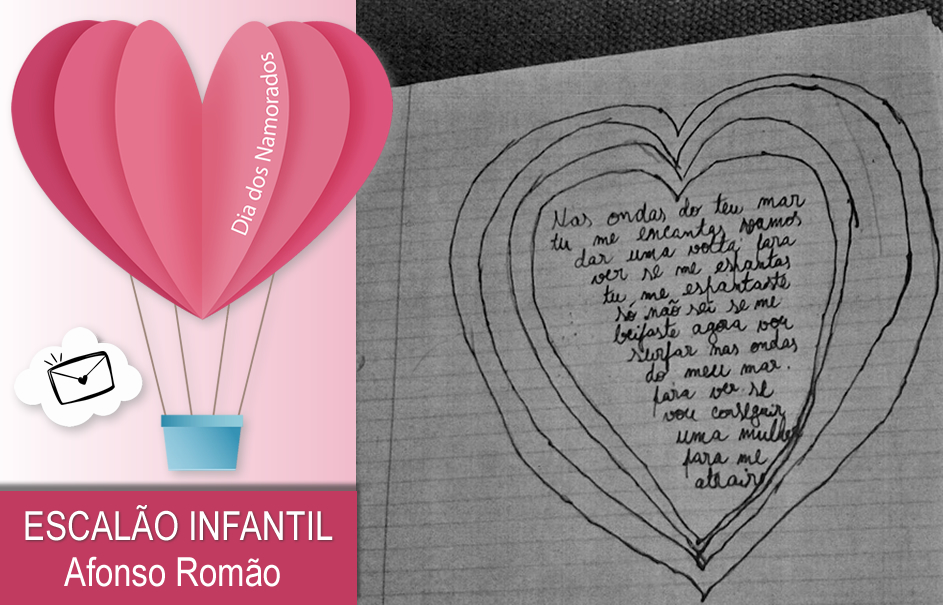 Dia dos Namorados
ESCALÃO INFANTIL
Afonso Romão
Nas ondas do teu mar
tu me encantas vamos
dar uma volta para
ver se me espantas
tu me espantaste
só não sei se me
beijaste agora vou
surfar nas ondas
do meu mar.
para ver se
vou conseguir
uma mulher
para me
atrair